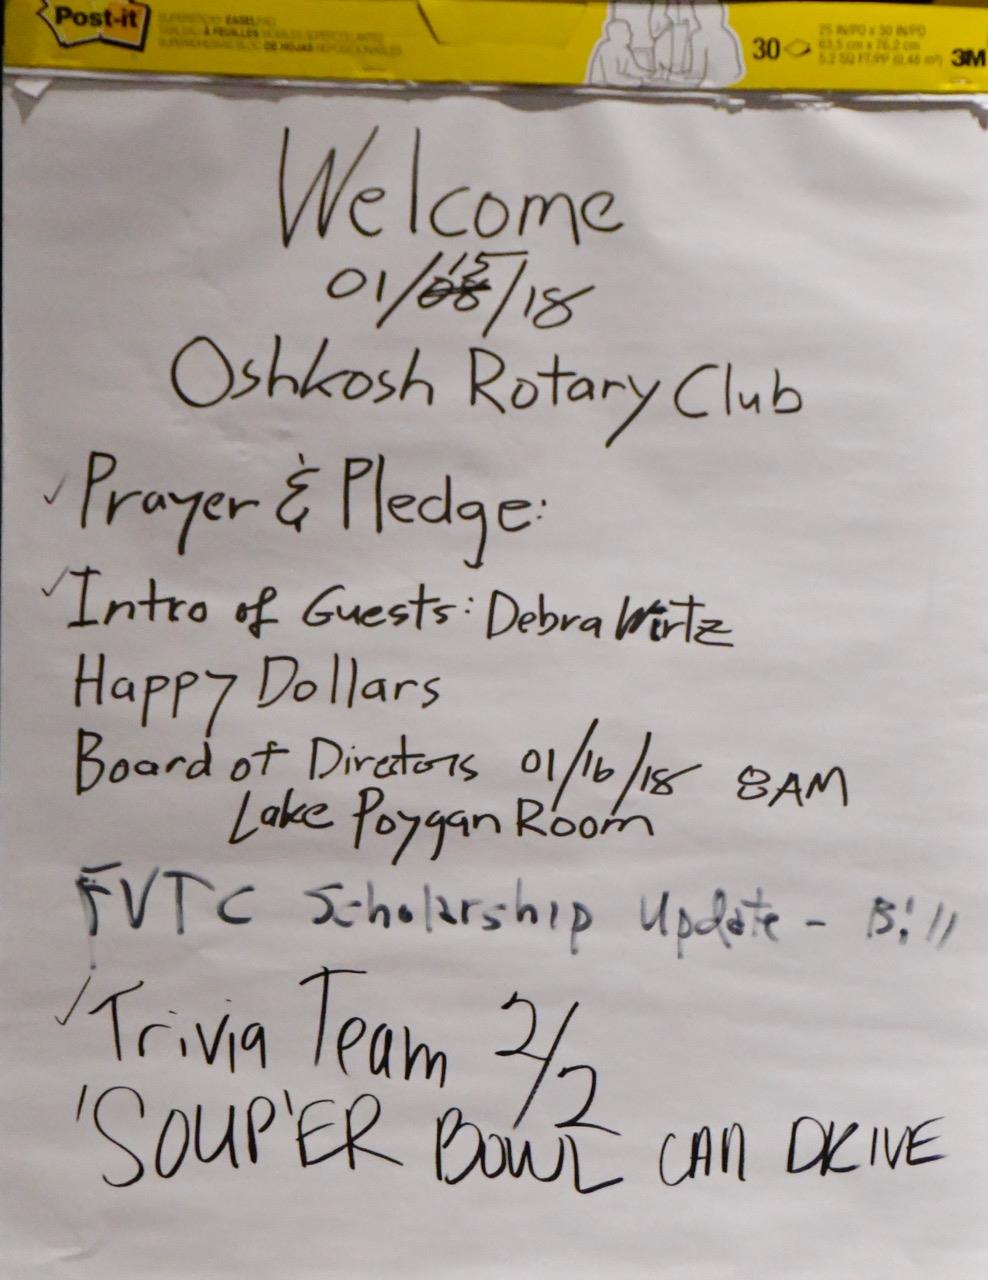 Post-it
EASEL PAD
30
25 IN/PO x 30 IN/PO
63,5 cm x 76,2 cm
5.2 SQ FT/PP (0,48 m²)
3M
Welcome
01/15/18
Oshkosh Rotary Club
✓ Prayer & Pledge:
✓ Intro of Guests: Debra Wirtz
Happy Dollars
Board of Directors 01/16/18 8AM
Lake Poygan Room
FVTC Scholarship Update - Bill
✓ Trivia Team 2/2
'SOUP'ER BOWL CAN DRIVE